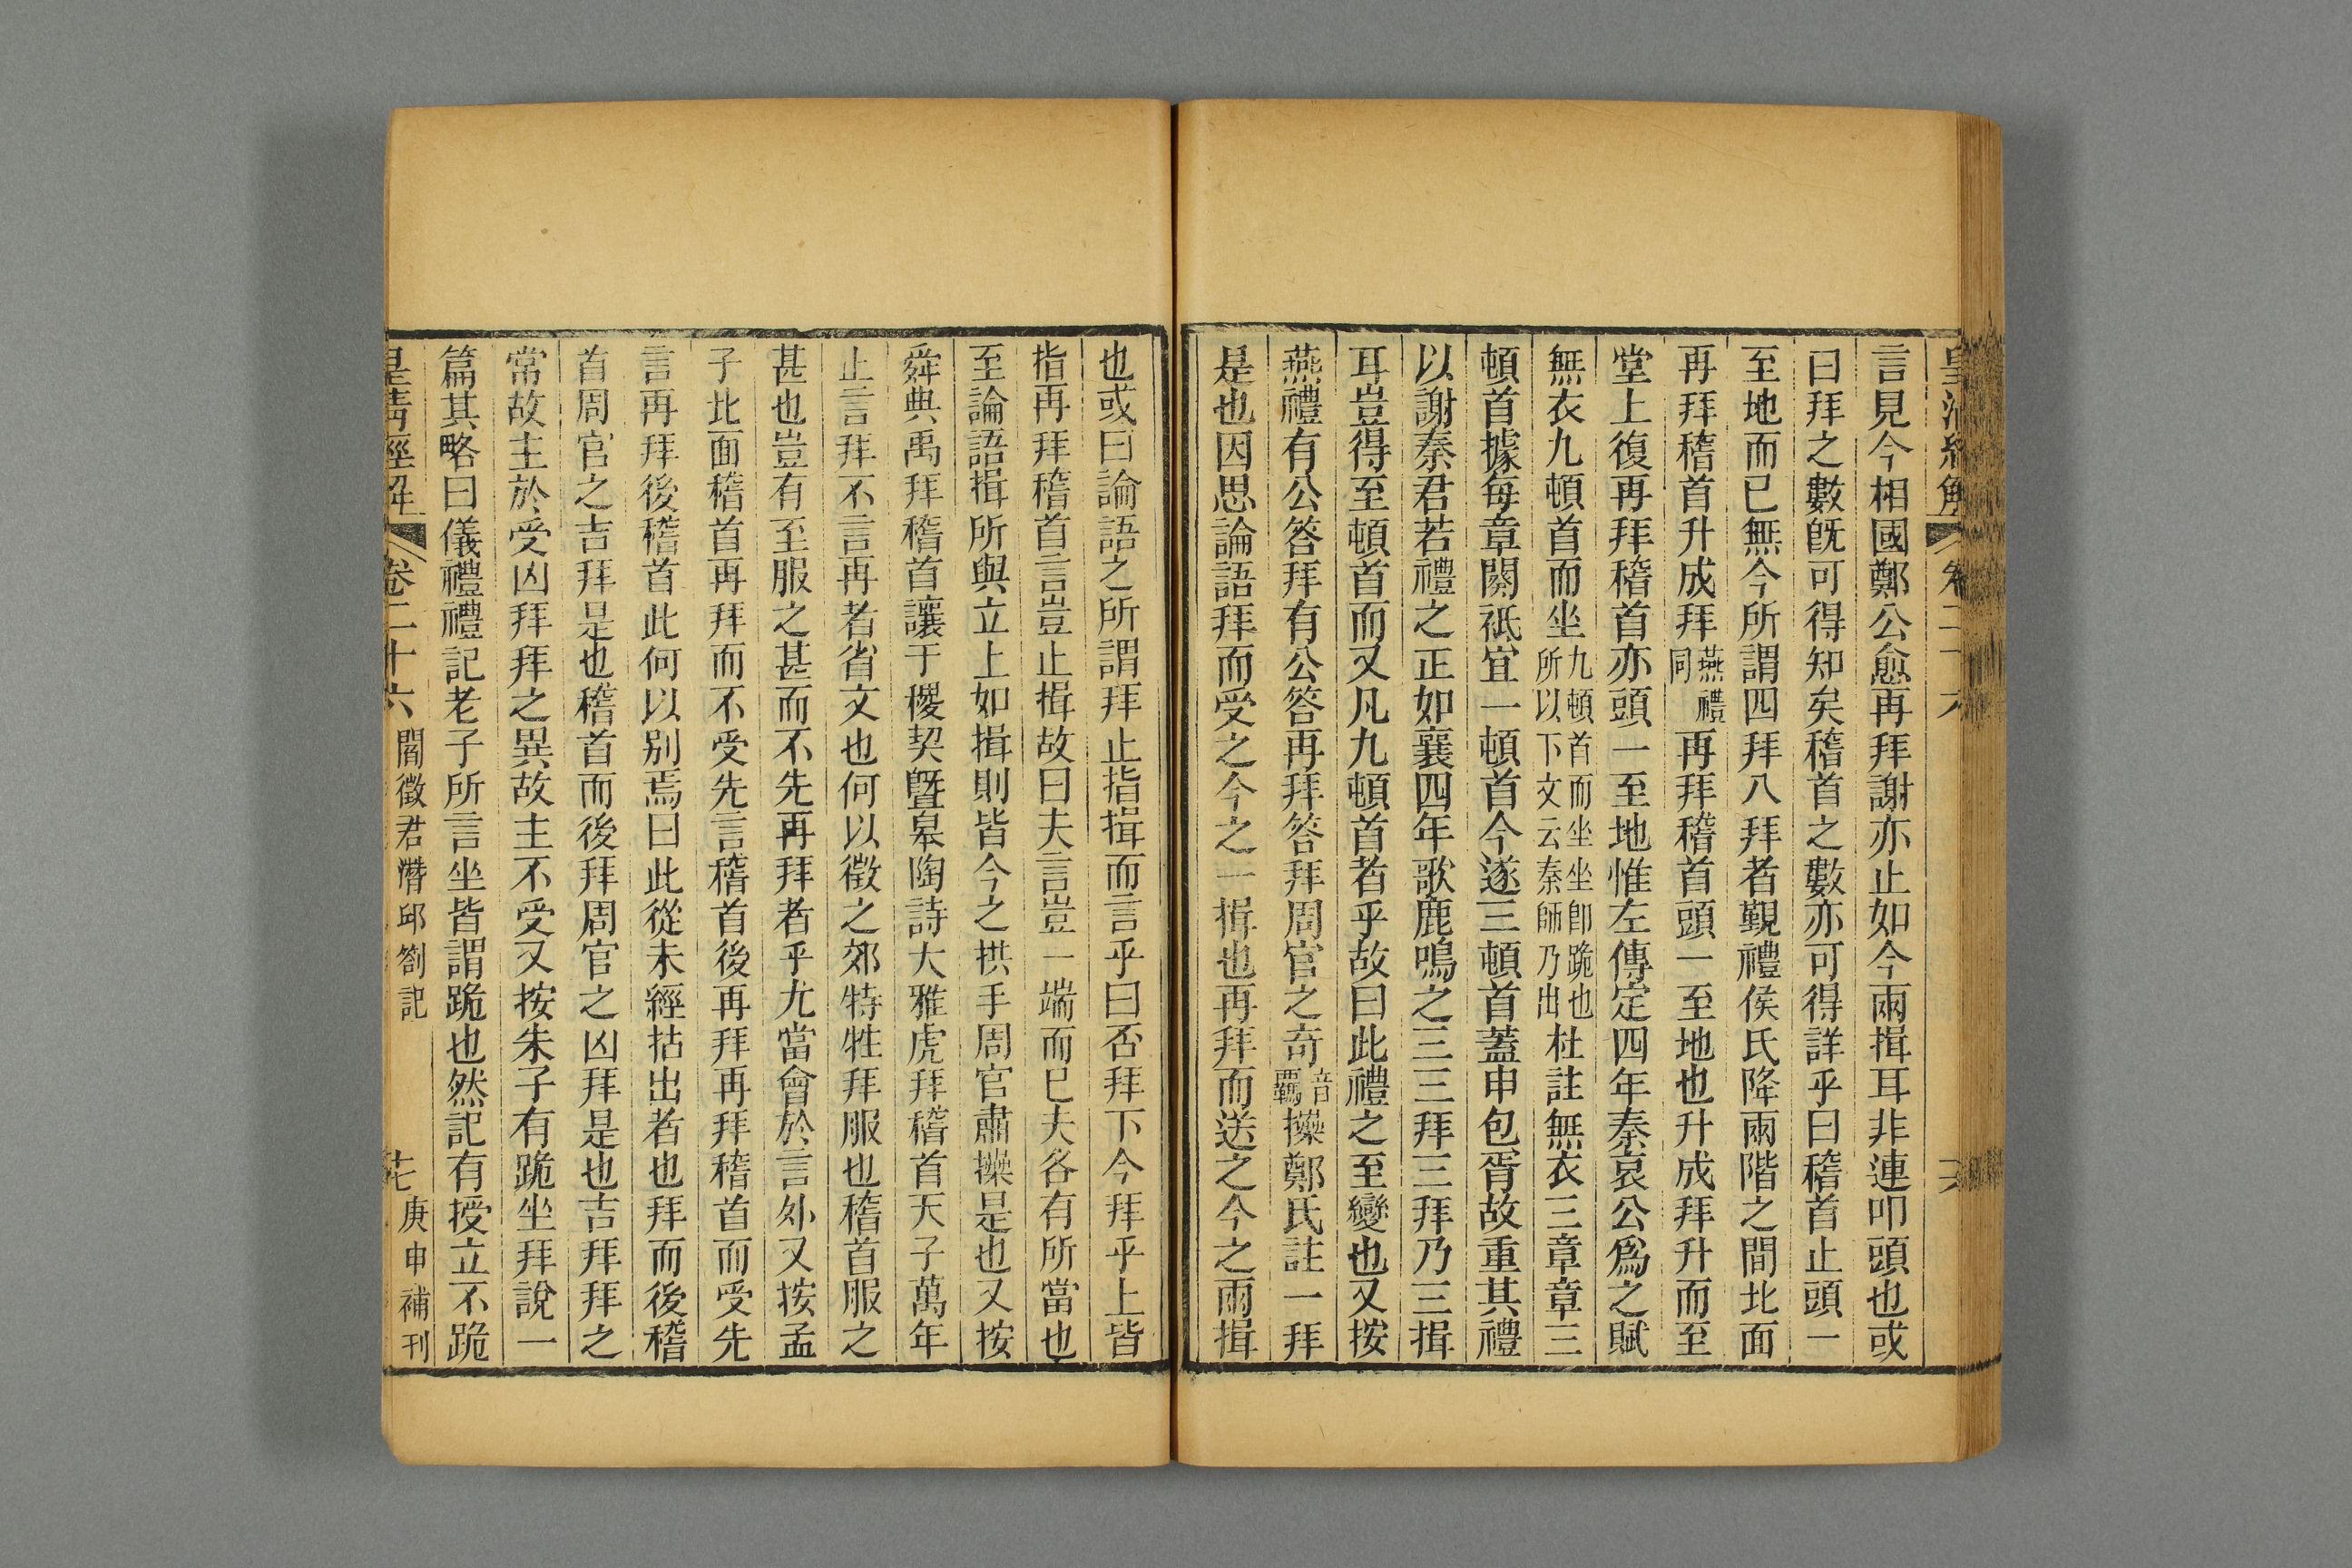 皇清經解 卷二十六
言見今相國鄭公愈再拜謝亦止如今兩揖耳非連叩頭也或
曰拜之數旣可得知矣稽首之數亦可得詳乎曰稽首止頭一
至地而已無今所謂四拜八拜者覲禮侯氏降兩階之間北面
再拜稽首升成拜燕禮同再拜稽首頭一至地也升成拜升而至
堂上復再拜稽首亦頭一至地惟左傳定四年秦哀公爲之賦
無衣九頓首而坐九頓首而坐坐卽跪也所以下文云秦師乃出杜註無衣三章章三
頓首據每章闋祗宜一頓首今遂三頓首蓋申包胥故重其禮
以謝秦君若禮之正如襄四年歌鹿鳴之三三拜三拜乃三揖
耳豈得至頓首而又凡九頓首者乎故曰此禮之至變也又按
燕禮有公答拜有公答再拜答拜周官之奇音羈𢷤鄭氏註一拜
是也因思論語拜而受之今之一揖也再拜而送之今之兩揖
也或曰論語之所謂拜止指揖而言乎曰否拜下今拜乎上皆
指再拜稽首言豈止揖故曰夫言豈一端而已夫各有所當也
至論語揖所與立上如揖則皆今之拱手周官肅𢷤是也又按
舜典禹拜稽首讓于稷契曁皋陶詩大雅虎拜稽首天子萬年
止言拜不言再者省文也何以徵之郊特牲拜服也稽首服之
甚也豈有至服之甚而不先再拜者乎尤當會於言外又按孟
子北面稽首再拜而不受先言稽首後再拜再拜稽首而受先
言再拜後稽首此何以別焉曰此從未經拈出者也拜而後稽
首周官之吉拜是也稽首而後拜周官之凶拜是也吉拜拜之
常故主於受凶拜拜之異故主不受又按朱子有跪坐拜說一
篇其略曰儀禮禮記老子所言坐皆謂跪也然記有授立不跪
皇清經解 卷二十六 閻徵君濳邱劄記 七 庚申補刊